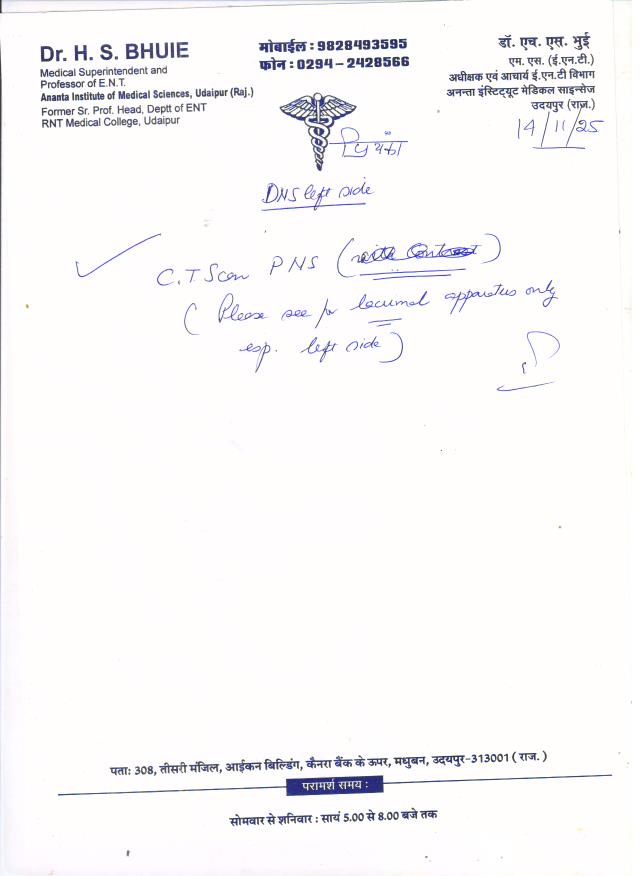 Dr. H. S. BHUIE
Medical Superintendent and
Professor of E.N.T.
Ananta Institute of Medical Sciences, Udaipur (Raj.)
Former Sr. Prof. Head, Deptt of ENT
RNT Medical College, Udaipur
मोबाईल : 9828493595
फोन : 0294 – 2428566
डॉ. एच. एस. भुई
एम. एस. (ई.एन.टी.)
अधीक्षक एवं आचार्य ई.एन.टी विभाग
अनन्ता इंस्टिट्यूट मेडिकल साइन्सेज
उदयपुर (राज.)
14/11/25
DNS left side
C.T Scan PNS (with Contrast)
(Please see for lacrimal apparatus only
esp. left side)
पता: 308, तीसरी मंजिल, आईकन बिल्डिंग, कैनरा बैंक के ऊपर, मधुबन, उदयपुर-313001 ( राज. )
परामर्श समय :
सोमवार से शनिवार : सायं 5.00 से 8.00 बजे तक